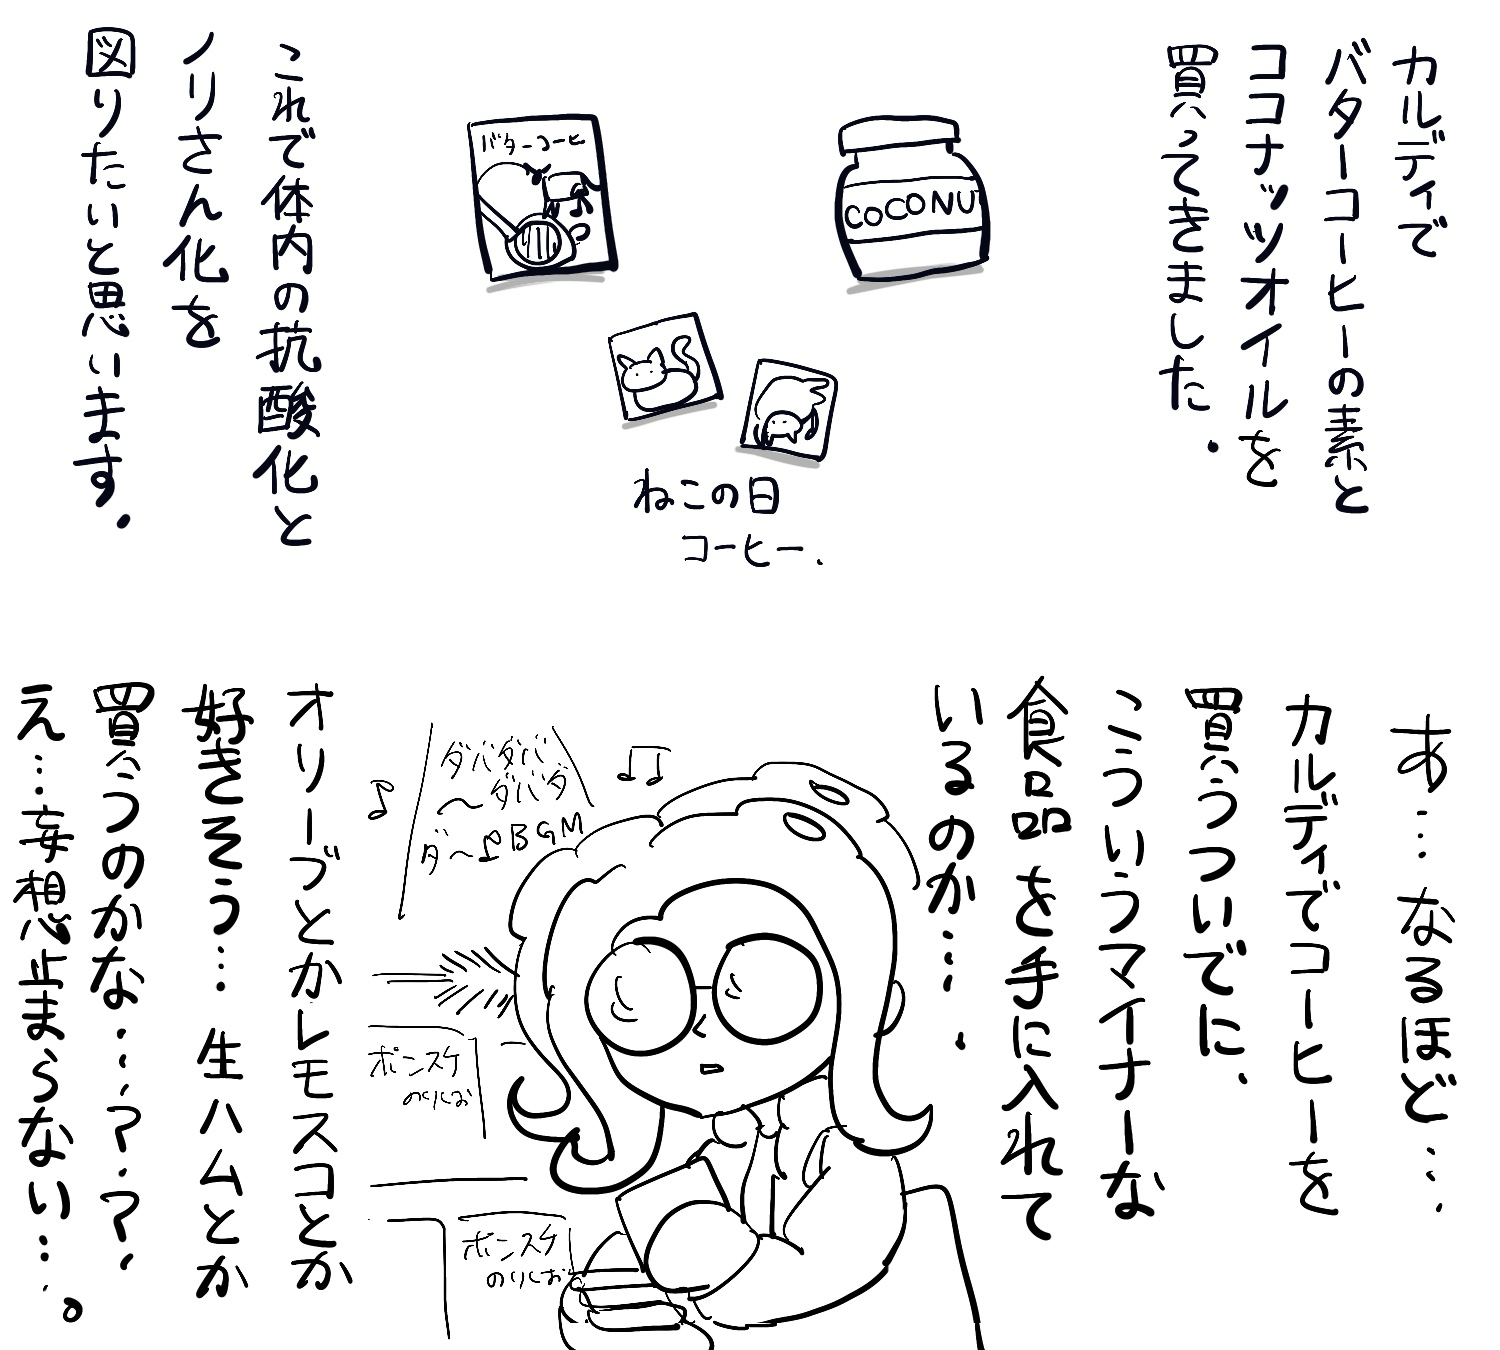 カルディで
バターコーヒーの素と
ココナッツオイルを
買ってきました.
COCONU
バターコーヒ
ねこの日
コーヒー.
これで体内の抗酸化と
ノリさん化を
図りたいと思います.
あ…なるほど…
カルディでコーヒーを
買うついでに、
こういうマイナーな
食品を手に入れて
いるのか….
ダバダバ
〜ダバダ
ダ〜♪BGM
ポンスケ
のりしお
ポンスケ
のりしお
オリーブとかレモスコとか
好きそう…生ハムとか
買うのかな…???
え…妄想止まらない…。